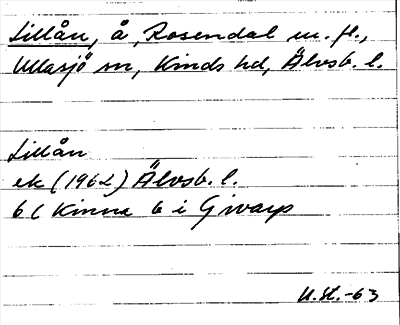 Lillån, å, Rosendal m. fl.,
Ullasjö sn, Kinds hd, Älvsb. l.
Lillån
ek (1962) Älvsb. l.
6 C Kinna 6 i Grvarp
U.St.-63